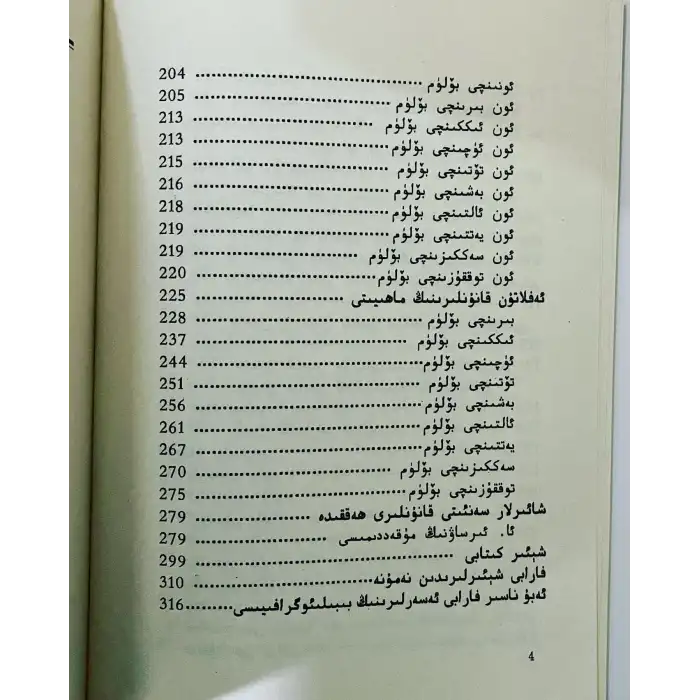 ئونىنچى بۆلۈم ........................ 204
ئون بىرىنچى بۆلۈم ........................ 205
ئون ئىككىنچى بۆلۈم ........................ 213
ئون ئۈچىنچى بۆلۈم ........................ 213
ئون تۆتىنچى بۆلۈم ........................ 215
ئون بەشىنچى بۆلۈم ........................ 216
ئون ئالتىنچى بۆلۈم ........................ 218
ئون يەتتىنچى بۆلۈم ........................ 219
ئون سەككىزىنچى بۆلۈم ........................ 219
ئون توققۇزىنچى بۆلۈم ........................ 220
ئەفلاتۇن قانۇنلىرىنىڭ ماھىيىتى ........................ 225
بىرىنچى بۆلۈم ........................ 228
ئىككىنچى بۆلۈم ........................ 237
ئۈچىنچى بۆلۈم ........................ 244
تۆتىنچى بۆلۈم ........................ 251
بەشىنچى بۆلۈم ........................ 256
ئالتىنچى بۆلۈم ........................ 261
يەتتىنچى بۆلۈم ........................ 267
سەككىزىنچى بۆلۈم ........................ 270
توققۇزىنچى بۆلۈم ........................ 275
شائىرلار سەنئىتى قانۇنلىرى ھەققىدە ........................ 279
ئا. ئىرساۋنىڭ مۇقەددىمىسى ........................ 279
شېئىر كىتابى ........................ 299
فارابى شېئىرلىرىدىن نەمۇنە ........................ 310
ئەبۇ ناسىر فارابى ئەسەرلىرىنىڭ بىبىلىئوگرافىيىسى ........................ 316
4